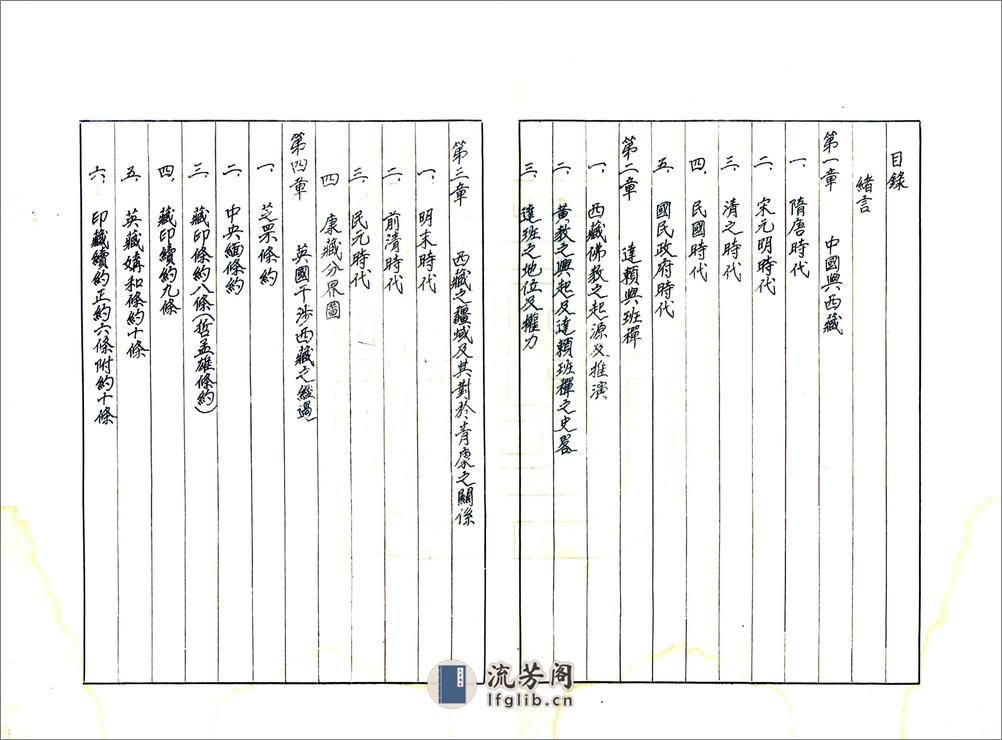 目錄
緒言
第一章 中國與西藏
一、隋唐時代
二、宋元明時代
三、清之時代
四、民國時代
五、國民政府時代
第二章 達賴與班禪
一、西藏佛教之起源及推演
二、黃教之興起及達賴班禪之史畧
三、達班之地位及權力
第三章 西藏之疆域及其對於青康之關係
一、明末時代
二、前清時代
三、民元時代
四 康藏分界圖
第四章 英國干涉西藏之經過
一、芝罘條約
二、中央緬條約
三、藏印條約八條（哲孟雄條約）
四、藏印續約九條
五、英藏媾和條約十條
六、印藏續約正約六條附約十條
流芳阁
lfglib.cn